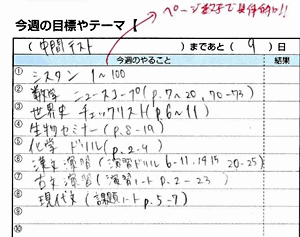 ページまで具体的に!!
今週の目標やテーマ【
(中間テスト)まであと(9)日
今週のやること 結果
① シスタン 1〜100
② 数学 ニュースコープ(p.7〜20, 70-73)
③ 世界史 チェックリスト(p.6〜11)
④ 生物セミナー(p.8-19)
⑤ 化学 ドリル(p.2-4)
⑥ 漢文演習(演習ドリル 6-11, 14,15 20-25)
⑦ 古文演習(演習ノート p.2-23)
⑧ 現代文(課題ノート p.5-7)
⑨
⑩